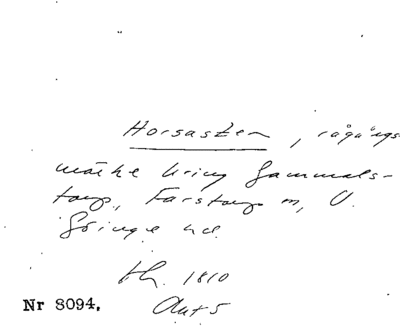 Horsasten, rågångs
märke kring Gammals-
torp, Farstorp sn, V.
Göinge hd.
lh. 1810
Akt 5
Nr 8094.